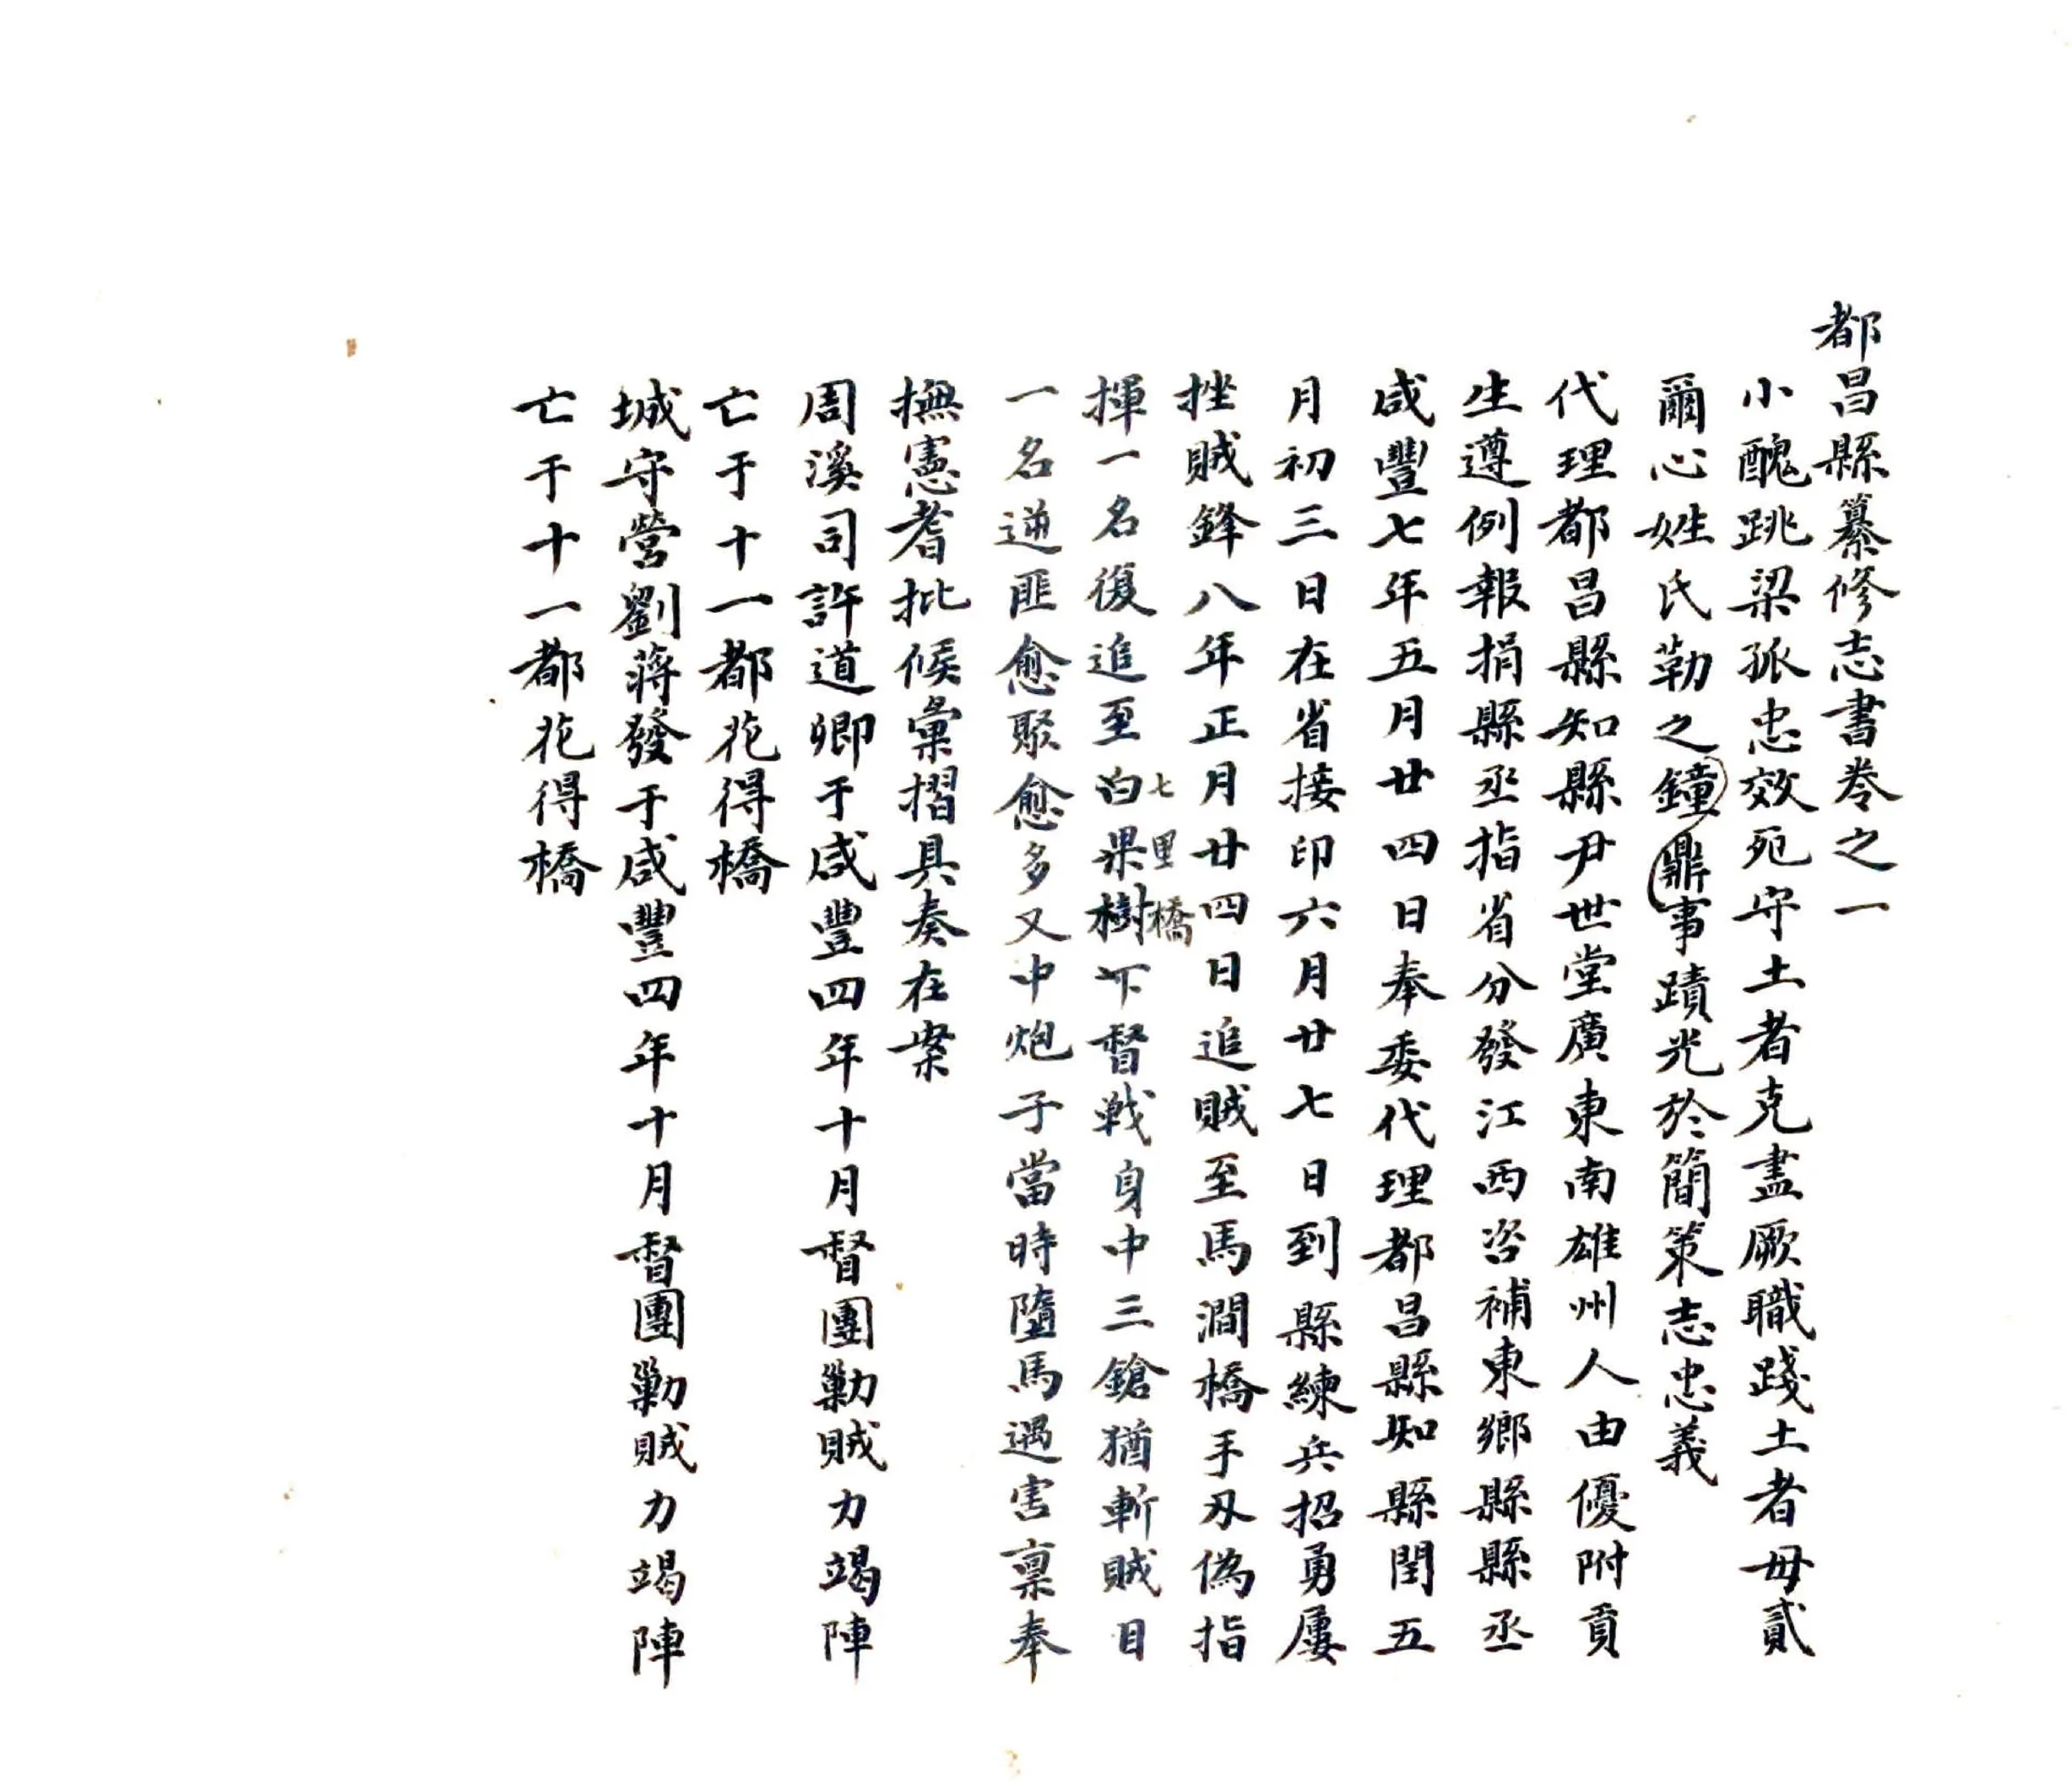 都昌縣纂修志書卷之一
小醜跳梁孤忠效死守土者克盡厥職踐土者毋貳
爾心姓氏勒之鐘鼎事蹟光於簡策志忠義
代理都昌縣知縣尹世堂廣東南雄州人由優附貢
生遵例報捐縣丞指省分發江西咨補東鄉縣縣丞
咸豐七年五月廿四日奉委代理都昌縣知縣閏五
月初三日在省接印六月廿七日到縣練兵招勇屢
挫賊鋒八年正月廿四日追賊至馬澗橋手刃偽指
七里橋
揮一名復追至白果樹下督戰身中三鎗猶斬賊目
一名逆匪愈聚愈多又中炮子當時墮馬遇害稟奉
撫憲耆批候彙摺具奏在案
周溪司許道卿于咸豐四年十月督團勦賊力竭陣
亡于十一都花得橋
城守營劉蔣發于咸豐四年十月督團勦賊力竭陣
亡于十一都花得橋